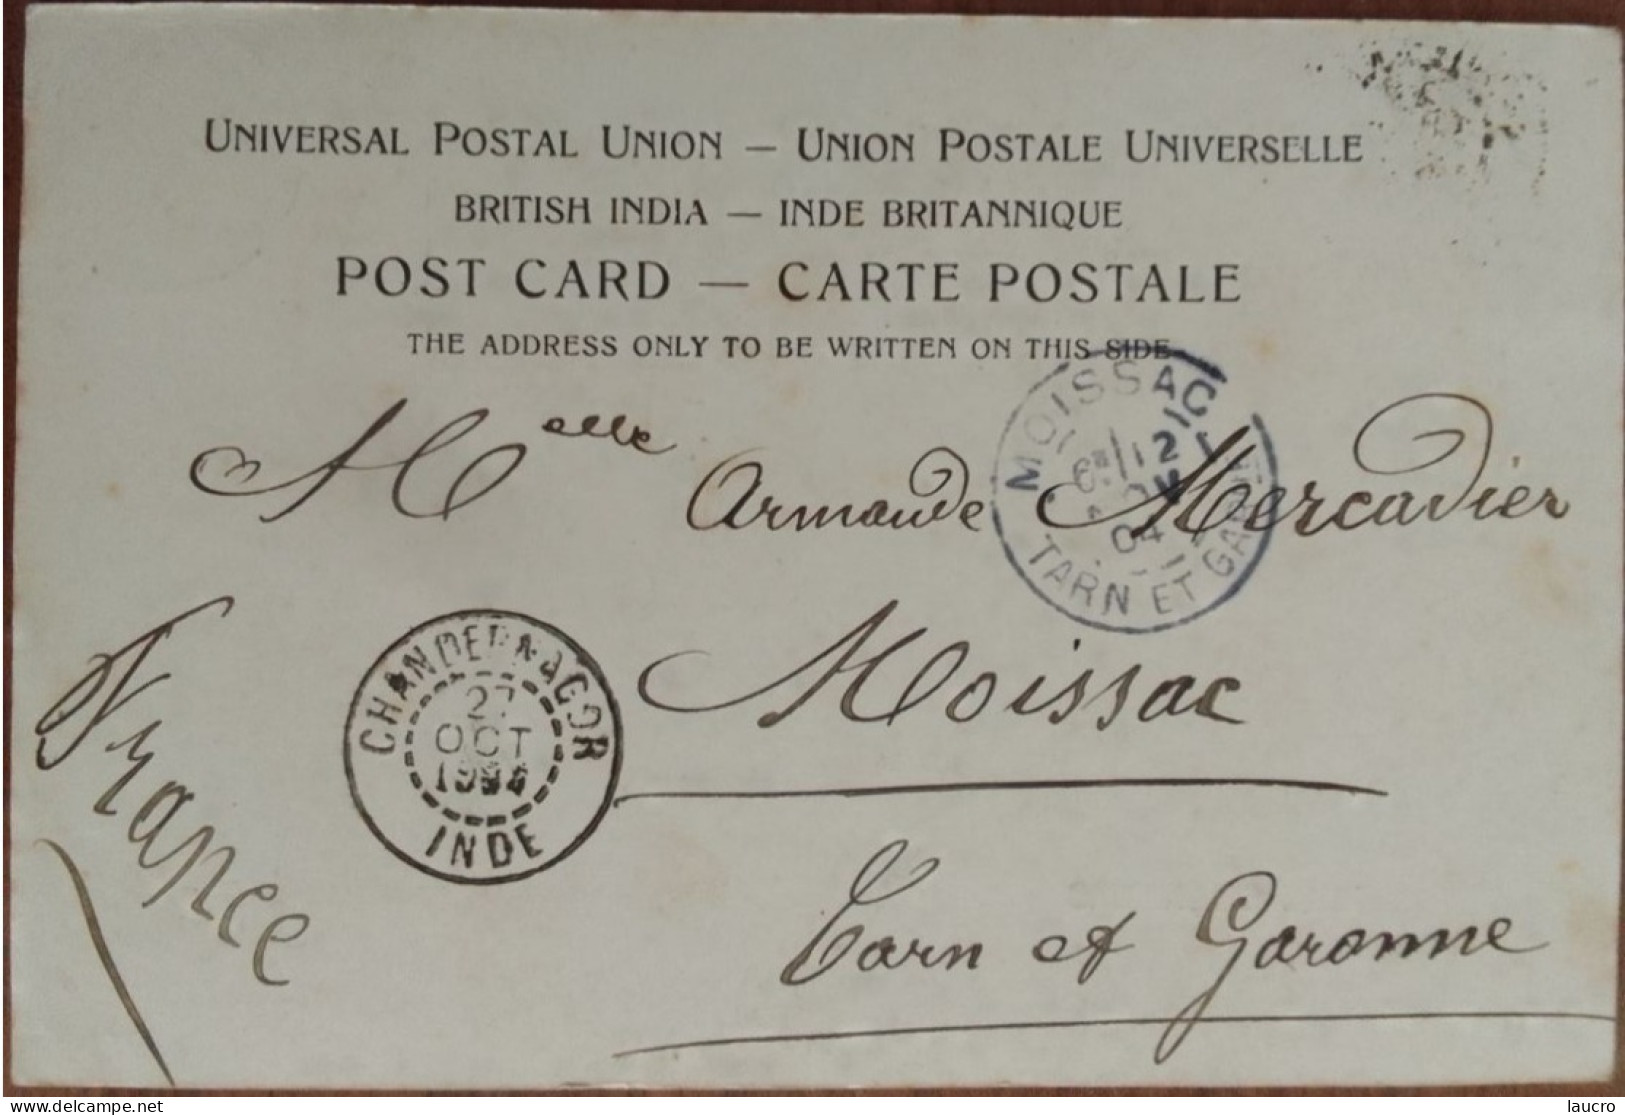 UNIVERSAL POSTAL UNION — UNION POSTALE UNIVERSELLE
BRITISH INDIA — INDE BRITANNIQUE
POST CARD — CARTE POSTALE
THE ADDRESS ONLY TO BE WRITTEN ON THIS SIDE
MOISSAC
12
04
TARN ET GARONNE
Melle Armande Mercadier
Moissac
Tarn et Garonne
France
CHANDERNAGOR
27
OCT
INDE
Delcampe.net
laucro